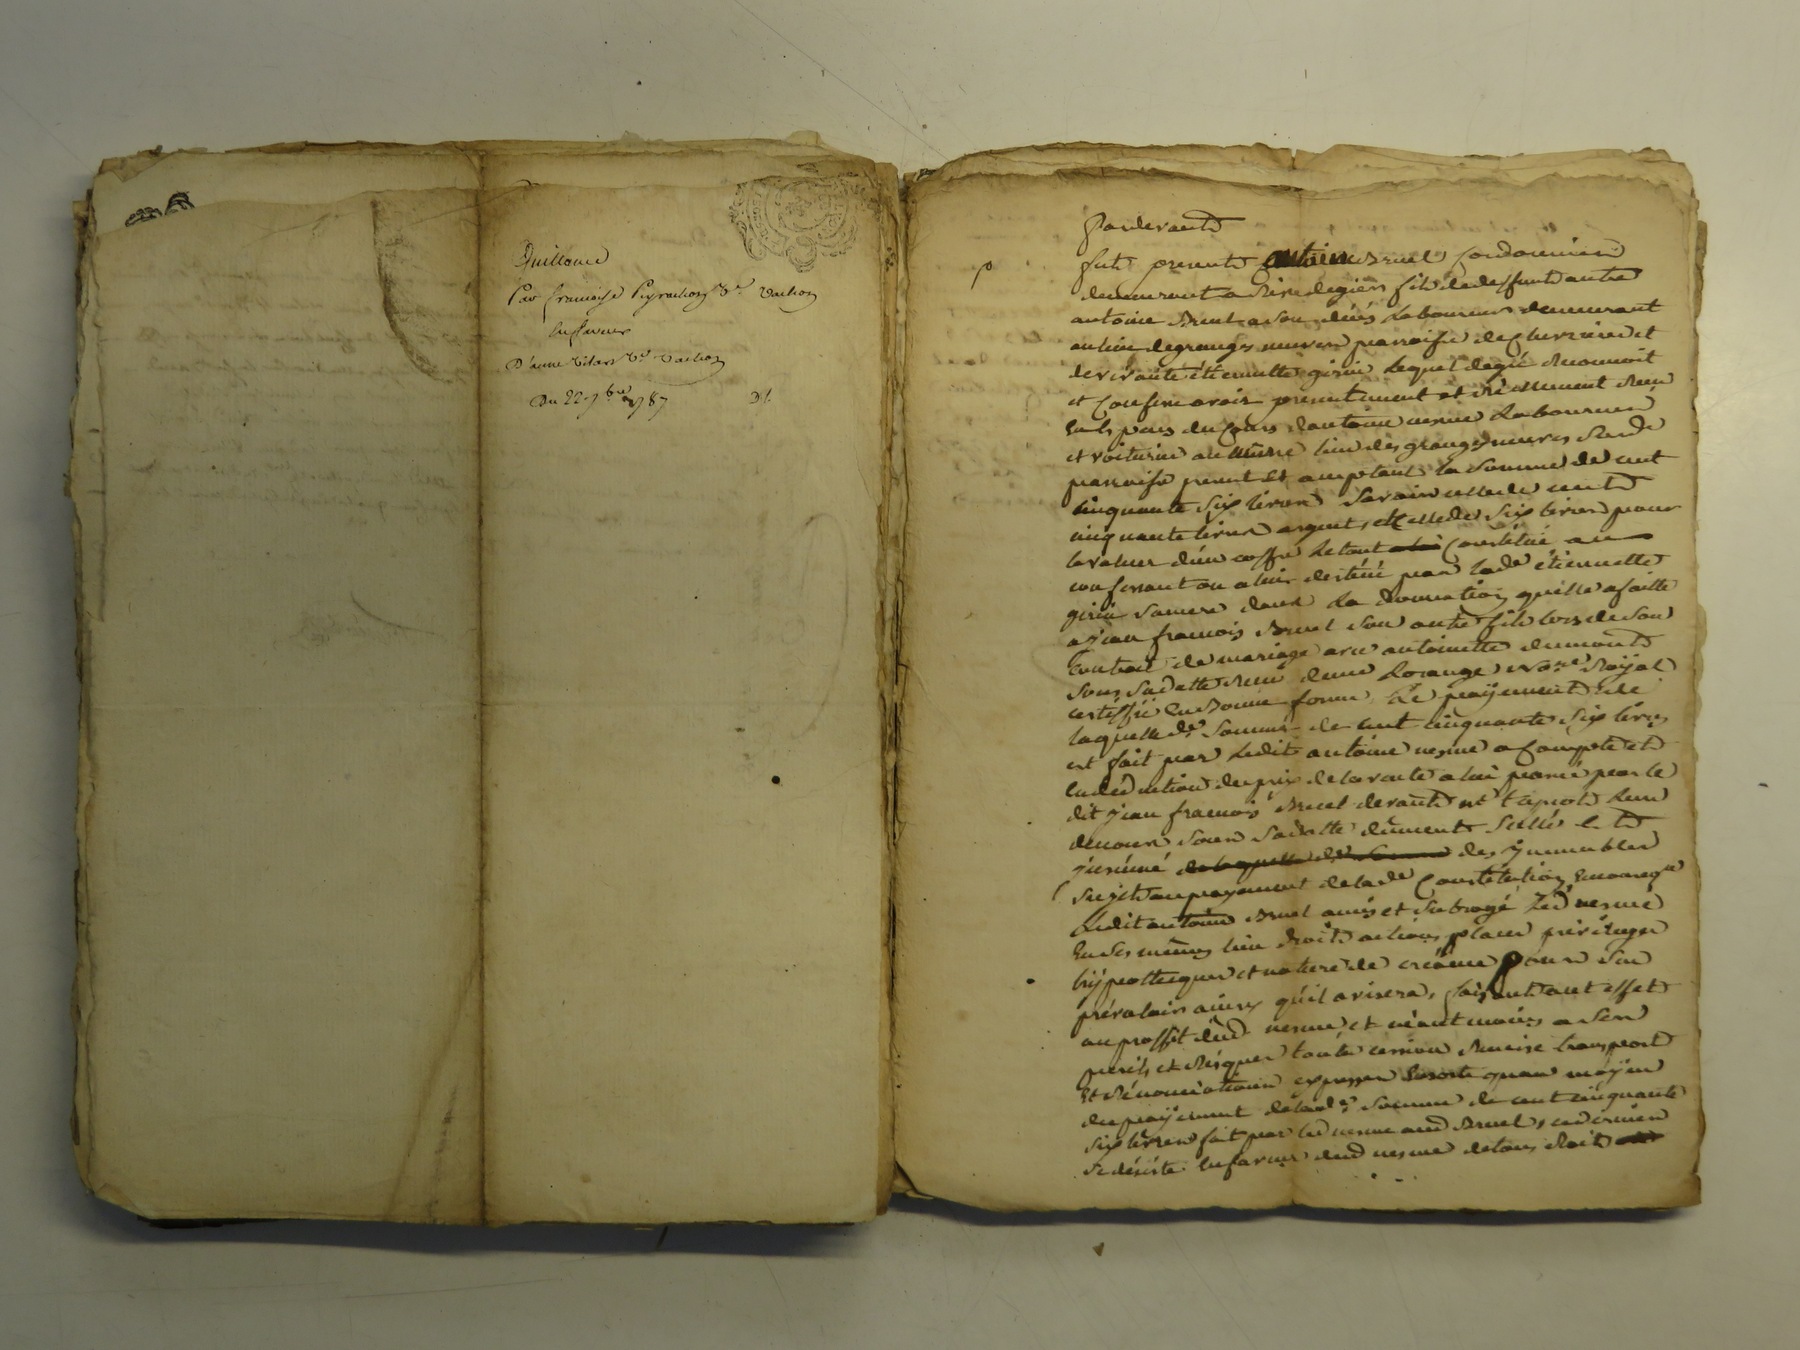 Quittance
Par francoise Peyrachon Ve. Vachon
En faveur
D'anne Vilars Ve. Vachon
Du 22 7bre 1787
Pardevant
fut present antoine Bruel Cordonnier
demeurant a Rivedegier fils de deffunt autre
antoine Bruel a son déces Laboureur demeurant
au lieu de granges neuves parroisse de
et de vivante étiennette girin Lequel de gré Reconnoit
et Confesse avoir presentement et réellement Reçu
antoine nesme Laboureur
et voiturier au même lieu des granges neuves Susde
parroisse present et acceptant la Somme de cent
cinquante six livres Savoir celle de cent
cinquante livres argent, et celle de six livres pour
la valeur d'un coffre Le tout Constitué au
confessant ou a lui destiné par lade étiennette
girin sa mere dans La donnation qu'elle a faitte
a jean francois Bruel son autre fils lors de son
Contrat de mariage avec antoinette dumont
Sous sa datte Reçu Nore Royal
en Bonne forme, Le payement de
laquelle de Somme de cent cinquante six livres
est fait par Ledit antoine nesme a Compte et
en déduction du prix de la vente a lui passé par le
dit jean francois Bruel devant me
sous sa datte dûment Scellé et
des jmmeubles
Sujets au payement de lade Constitution
Ledit antoine Bruel a mis et Subrogé Led nesme
En ses mêmes lieu droits actions place privileges
hÿpotheques et nature de créance pour s'en
prévaloir ainsy qu'il avisera, faisant a cet effet
au proffit dud nesme, et néantmoins a ses
perils et Risques toutes cession Remise transport
Et Rénonciations expresses En sorte quau moÿen
du payement delade Somme de cent cinquante
six livres fait par led nesme aud Bruel, ce dernier
se désiste En faveur dud nesme de tous droits